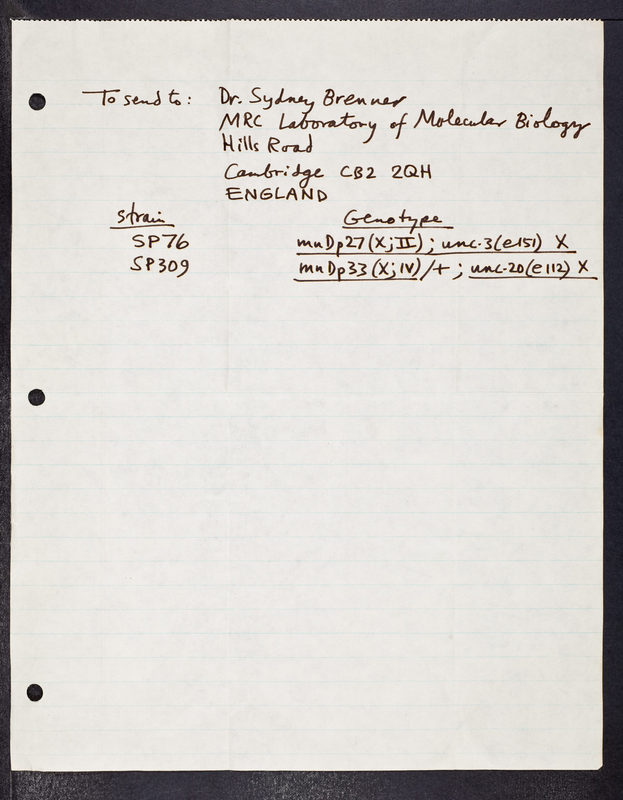 To send to: Dr. Sydney Brenner
MRC Laboratory of Molecular Biology
Hills Road
Cambridge CB2 2QH
ENGLAND
Strain Genotype
SP76 mnDp27(X;II); unc-3(e151) X
SP309 mnDp33(X;IV)/+; unc-20(e112) X